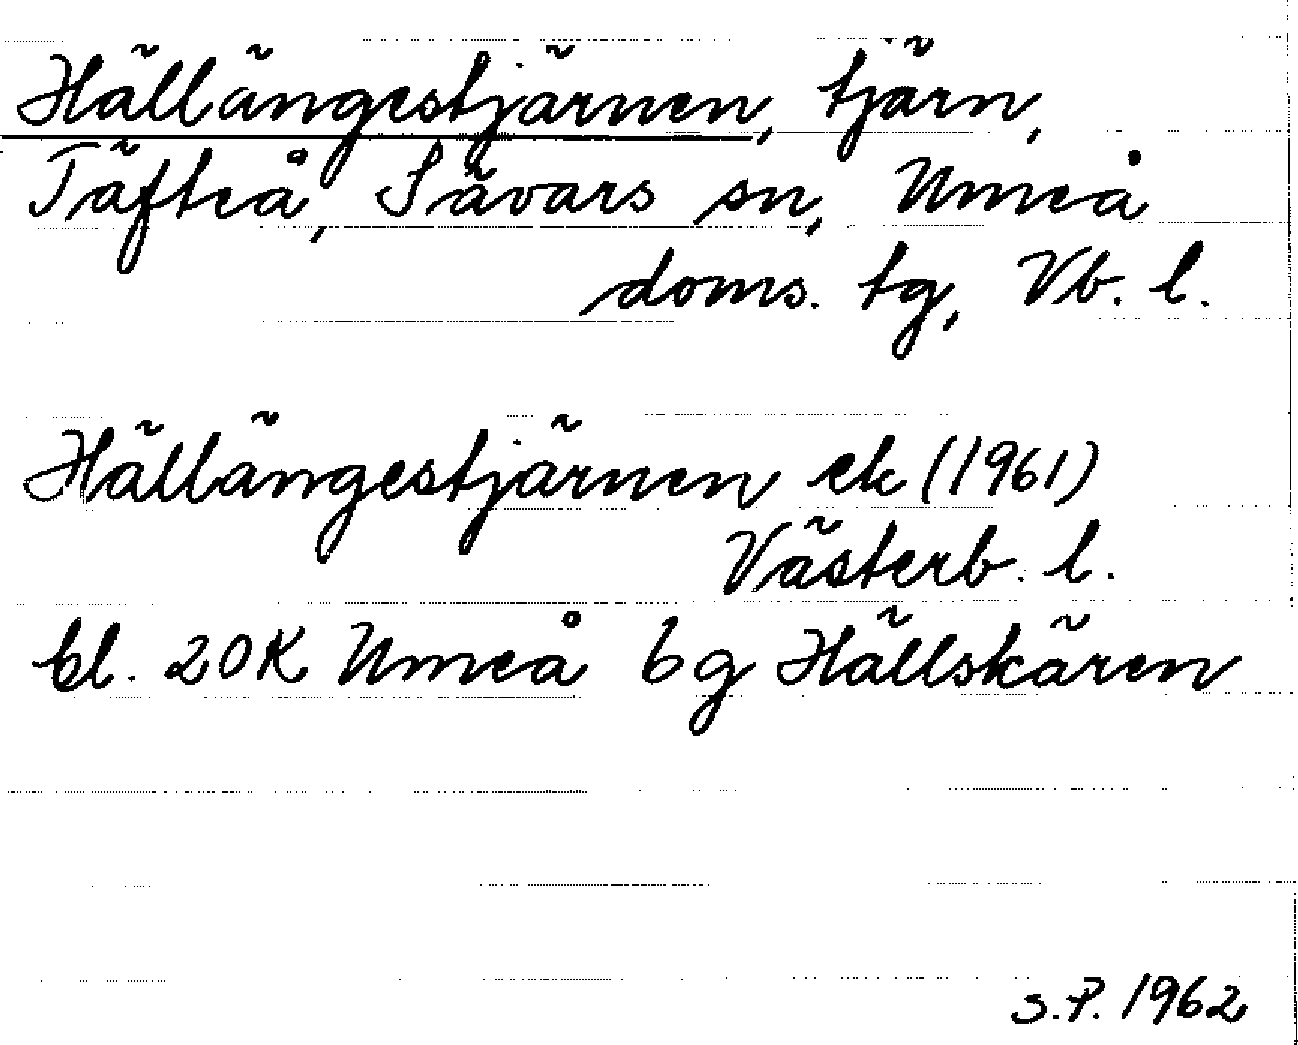 Hällängestjärnen, tjärn,
Täfteå, Sävars sn, Umeå
doms. tg, Vb. l.
Hällängestjärnen ek (1961)
Västerb. l.
bl. 20K Umeå 6g Hällskären
S.P. 1962